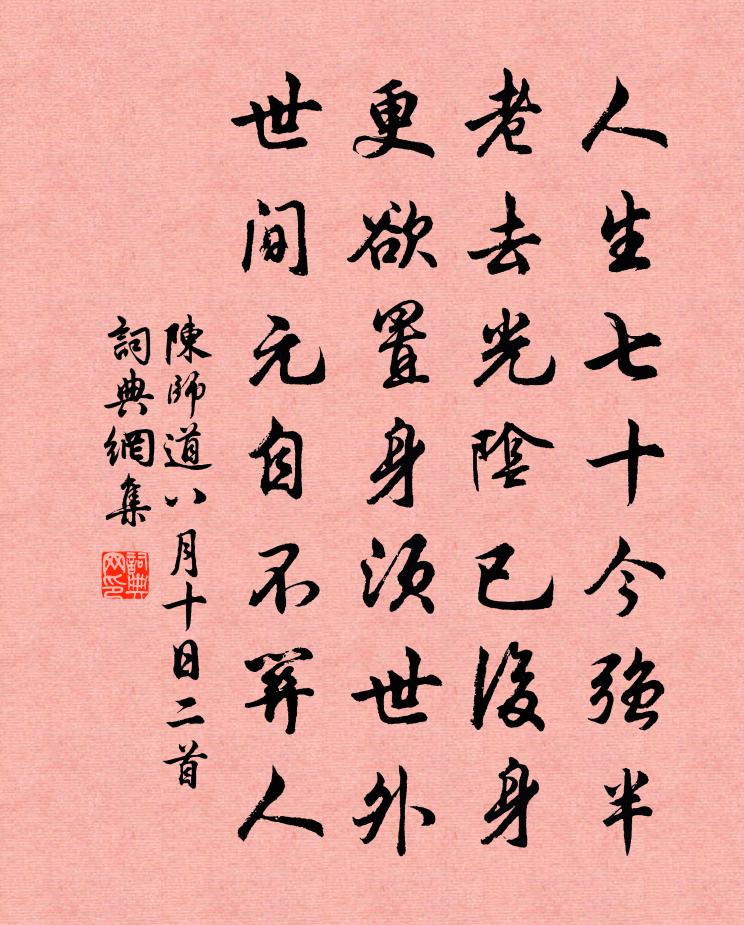 人生七十今強半
老去光陰已後身
更欲置身須世外
世間元自不關人
陳師道八月十日二首
詞典網集
詞典網印